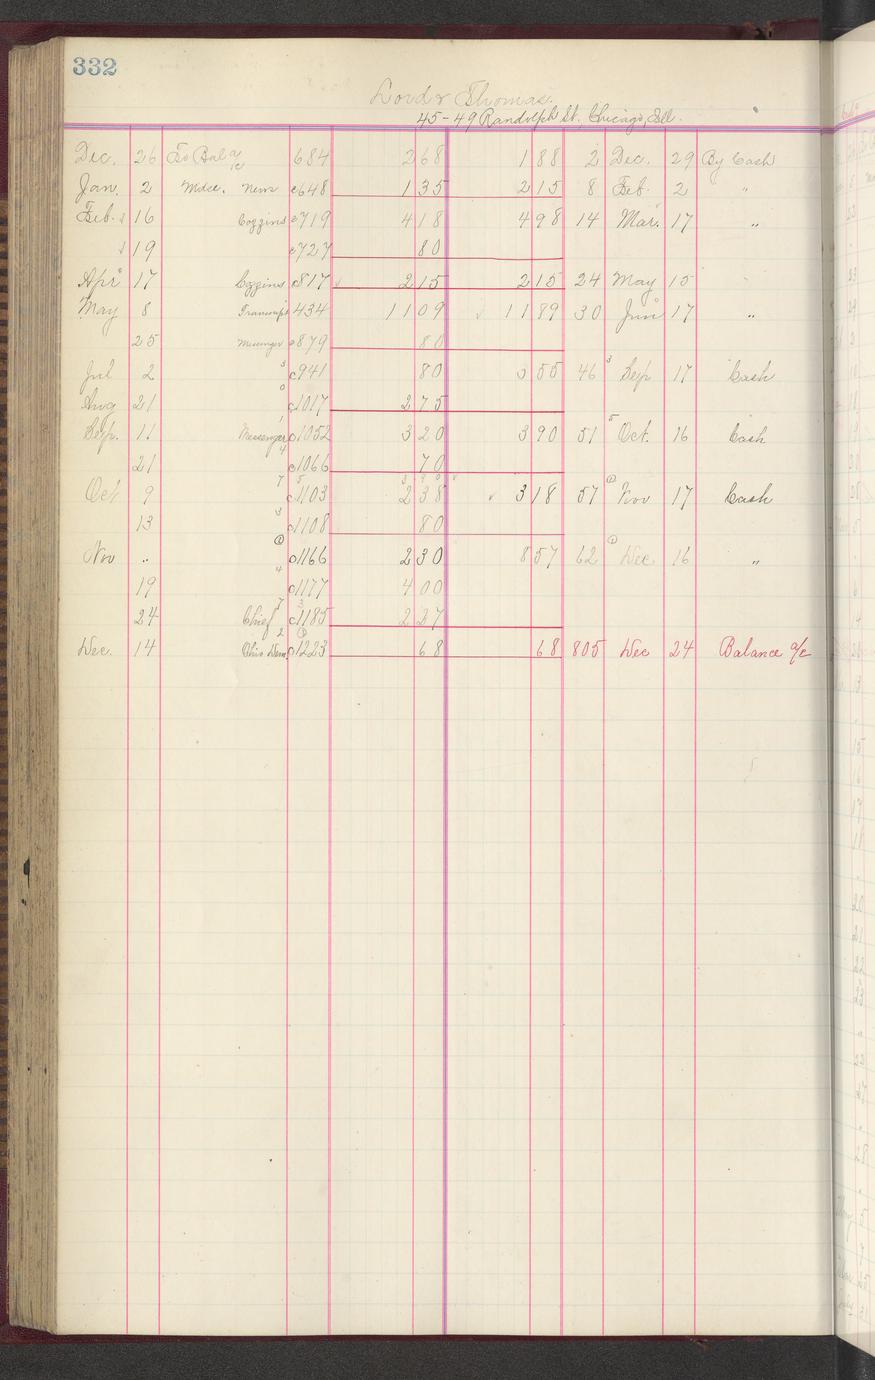 332
Lord & Thomas.
45-49 Randolph St., Chicago, Ill.
Dec. 26 To Bal a/c 684 2 68 1 88 2 Dec. 29 By Cash
Jan. 2 Mdse. News c648 1 35 2 15 8 Feb. 2 "
Feb. 16 Coggins c719 4 18 4 98 14 Mar. 17 "
19 c727 80
Apr 17 Coggins c817 2 15 2 15 24 May 15 "
May 8 Transcript 434 11 09 11 89 30 Jun 17 "
25 Messenger c879 80
Jul 2 c941 80 3 55 46 Sep 17 Cash
Aug 21 c1017 2 75
Sep. 11 Messenger c1052 3 20 3 90 51 Oct. 16 Cash
21 c1066 70
Oct 9 c1103 2 38 3 18 57 Nov 17 Cash
13 c1108 80
Nov " c1166 2 30 8 57 62 Dec 16 "
19 c1177 4 00
24 Chief c1185 2 27
Dec. 14 c1223 68 68 805 Dec 24 Balance a/c